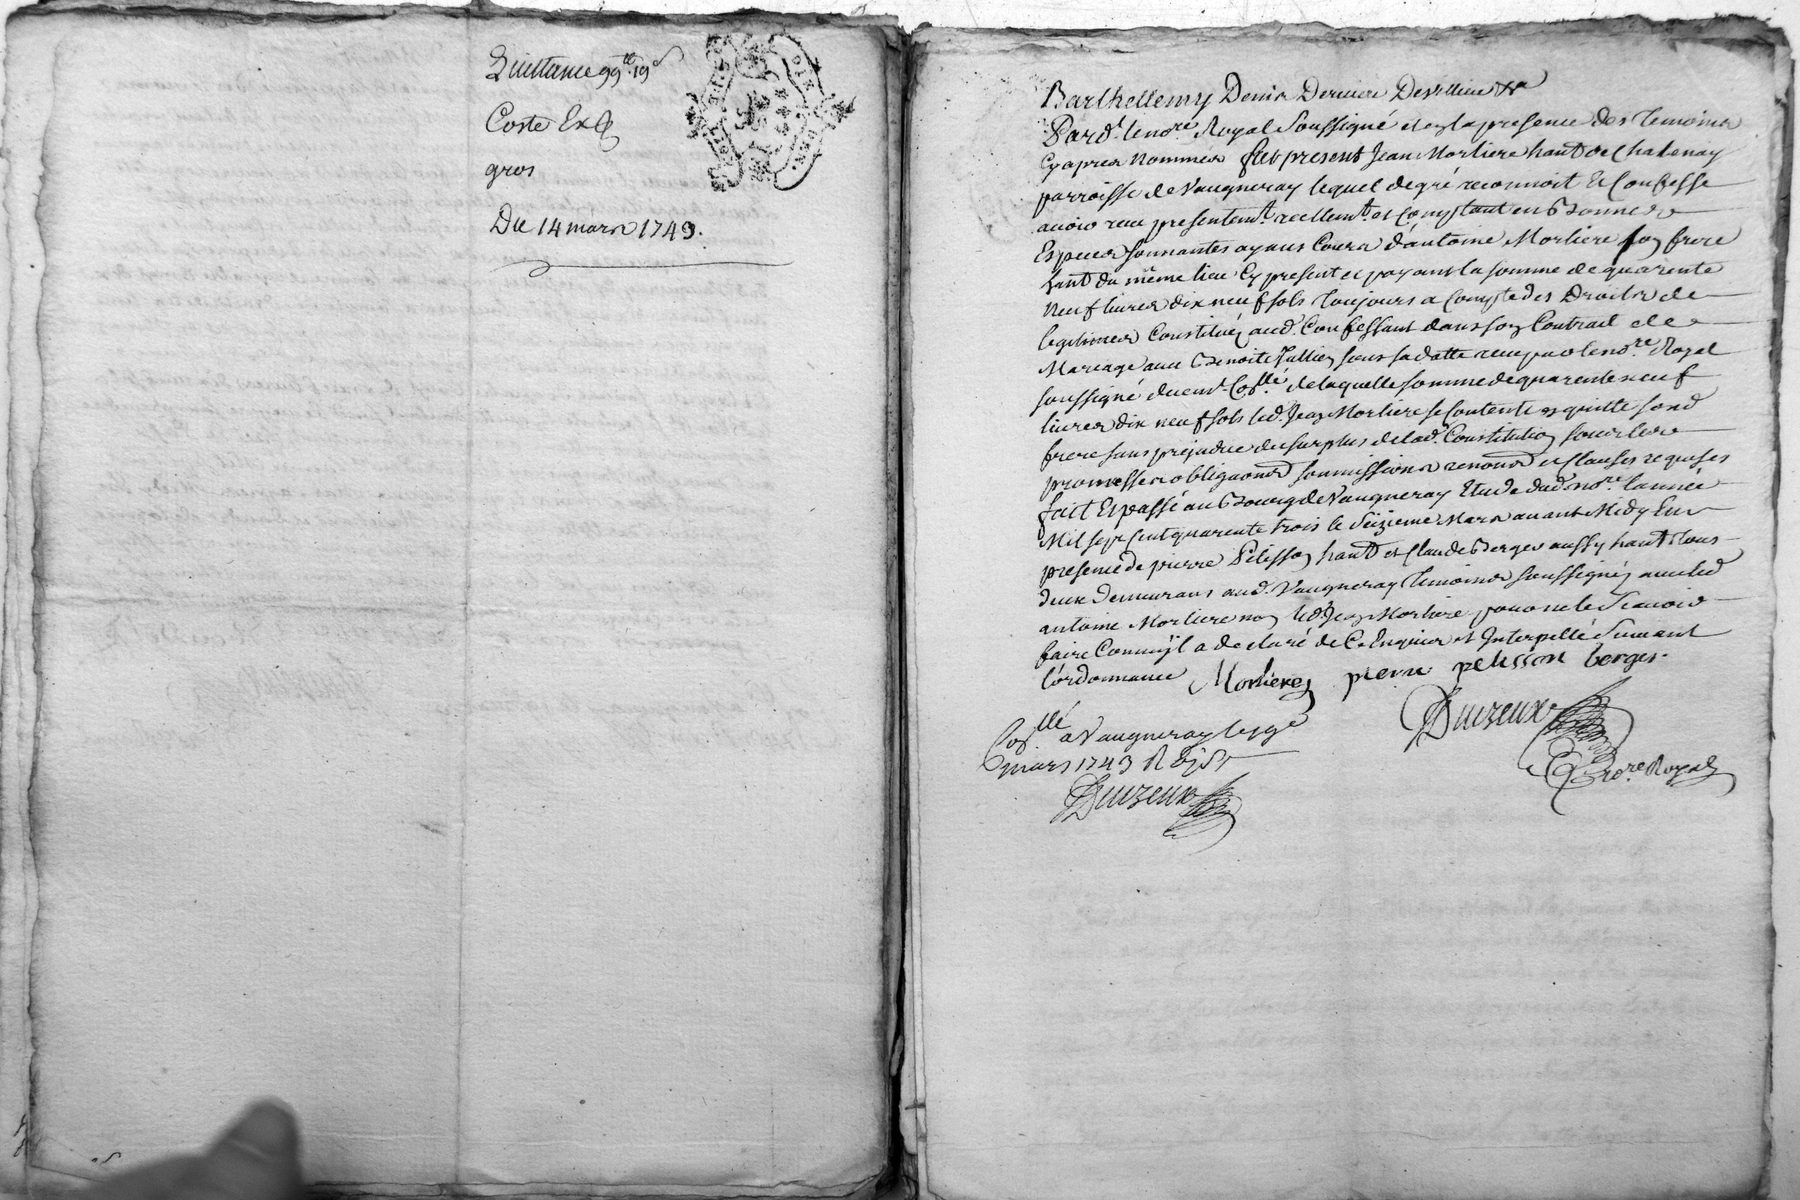 Quittance 99ᵗᵗ 19ˢ
Coste Ex
gros
Du 14 mars 1743.
Barthellemy Denis Derniere
Par dᵗ le noʳᵉ Royal soussigné et en la presence des temoins
cy apres nommés fut present Jean Morliere hantᵈ de Chatenay
parroisse de Vaugneray lequel de gré reconnoit et confesse
avoir reçu presentemᵗ reellemᵗ et comptant en bonnes
Especes sonnantes ayans cours d'antoine Morliere son frere
hantᵈ du même lieu cy present et payant la somme de quarente
neuf livres dix neuf sols toujours a compte des Droits de
legitimes Constitués audᵗ Confessant dans son Contract de
Mariage avec Benoite Jullien sous sa datte reçu par le noʳᵉ Royal
soussigné duemᵗ Coⁿˡˡᵉ de laquelle somme de quarente neuf
livres dix neuf sols ledᵗ Jean Morliere se contente et quitte sond
frere sans prejudice du surplus de ladᵗᵉ Constitution sous leurs
promesses obligaons soumissions renonᵒⁿˢ et clauses requises
fait et passé au Bourg de Vaugneray Etude dudᵗ noʳᵉ l'année
Mil sept cent quarente trois le seizieme Mars avant Midy En
presence de pierre Pelisson hantᵈ et Claude Berger aussy hantᵈ tous
deux demeurans audᵗ Vaugneray temoins soussignés avec led
antoine Morliere non ledᵗ Jean Morliere pour ne le scavoir
faire Comm'jl a declaré de ce Enquis et Interpellé suivant
l'ordonnance Morlieres pierre pelisson berger.
Coⁿˡˡᵉ a Vaugneray le
mars 1743 R
noʳᵉ Royal